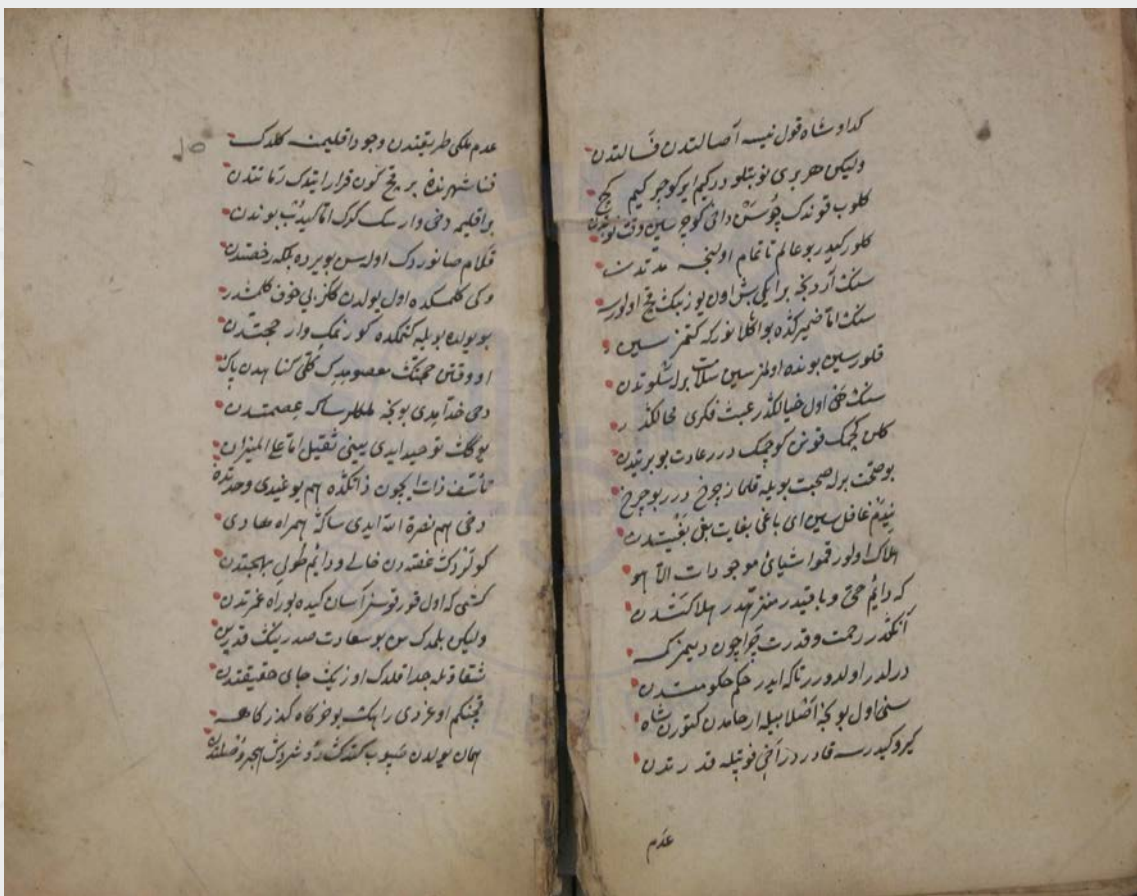 كداو شاه قول نيسه آصالتدن فسالتدن
وليكن هر برى نوبتلو دركيم ايركوچر كيم كيچ
كلوب قوندك چوسن داخى كوچرسين وقت نوبتدن
كلور كيدر بو عالم تا تمام اولنجه مدتدن
سنك آردكجه بر ايكى بش اون يوز بيك يخ اولورسه
سنك اما ضميركده بو اكلانور كه كتمزسين
قلورسين بونده اولمزسين سلامت برله شلوتدن
سنك خى اول خيالكدر عبث فكرى محالكدر
كلن كچمك قونن كوچمك در عادت بو بريتدن
بو صحت برله صحبت بويله قلماز چوخ درر بو چرخ
نيدم غافل سين اى باغى بغايت بغى بغيتدن
هلاك اولور قمو اشياى موجودات الا هو
كه دايم حى و باقيدر منزهدر هلاكتدن
آنكدر رحمت و قدرت چرا چون ديمز كمسه
درلدر اولدورر تا كه ايدر حكم حكومتدن
سنى اول بو كجه افضلا بيله ارحامدن كتورن شاه
كيرو كيدرسه قادر در آخى قوتيله قدرتدن
عدم
عدم ملكى طريقيندن وجود اقليمنه كلدك
فنا شهرنده بر قچ كون قرار ايتدك زمانتدن
بر اقليمه دخى وارسك كرك اما كيدب بوندن
قلام صانوردك اولسن بو يرده بلكه رخصتدن
وكى كلمكده اول يولدن كلز بى خوف كلمشدر
بو يولده بويله كتمكده كورنمك وار حجتدن
او وقتن حجتك معصومدك كلى كناهدن پاك
دخى خدامدى بو كجه ملكلر ساكه عصمتدن
يوكك توحيد ايدى يعنى ثقيل اما على الميزان
تأسف ذات ايچون ذاتكده هم يوغيدى وحدتده
دخى هم نصرة الله ايدى ساكه همراه معادى
كوكلزدك غصه دن خالى و دايم طولى بهجتدن
كشى كه اول قورقوسز آسان كيده بو راه عزتدن
وليكن بلمدك سن بو سعادت صدرينك قدرين
شقاوتله جدا قلدك اوزيك جاى حقيقتدن
قچنكم اوغردى راهك بو خركاه كذركاهه
همان يولدن صپوب كندك دوشردك هجره وصلتدن